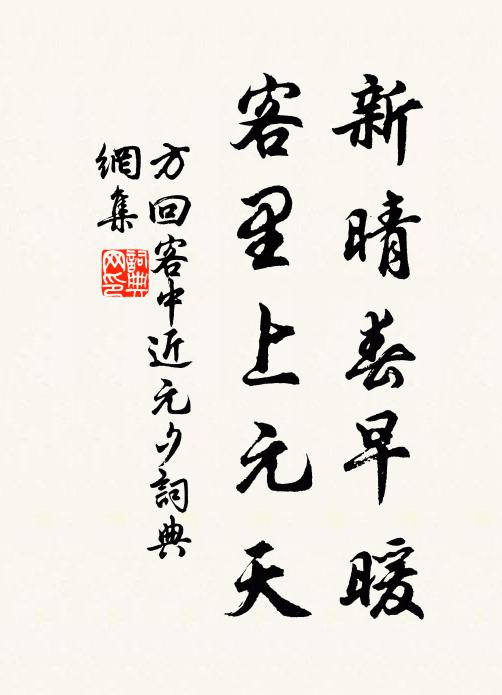 新晴春早暖
客里上元天
方回客中近元夕詞典
網集
詞典
网印